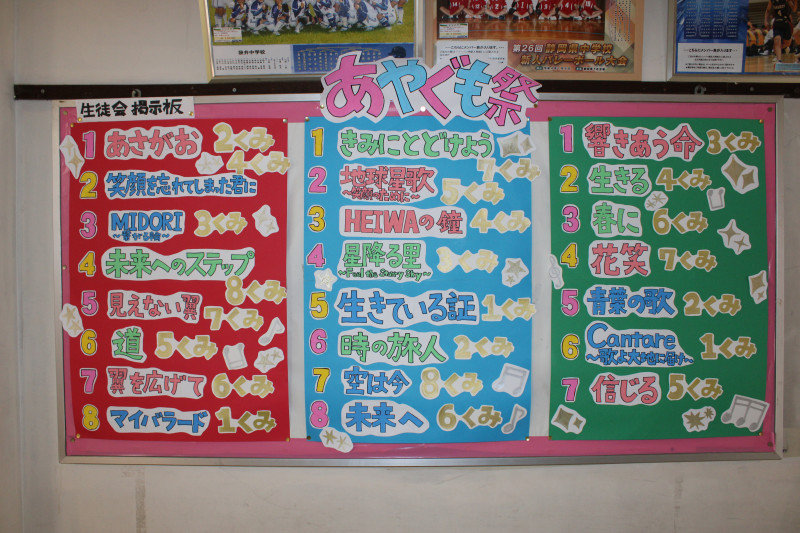 袋井中学校
第26回
静岡県中学校
新人バレーボール大会
生徒会 掲示板
あやぐも祭
1 あさがお 2くみ
2 笑顔を忘れてしまった君に 4くみ
3 MIDORI 3くみ
4 未来へのステップ
8くみ
5 見えない翼 7くみ
6 道 5くみ
7 翼を広げて 6くみ
8 マイバラード 1くみ
1 きみにとどけよう
7くみ
2 地球星歌 5くみ
~笑顔のために~
3 HEIWAの鐘 4くみ
4 星降る里 3くみ
~Feel the Starry Sky~
5 生きている証 1くみ
6 時の旅人 2くみ
7 空は今 8くみ
8 未来へ 6くみ
1 響きあう命 3くみ
2 生きる 4くみ
3 春に 6くみ
4 花笑 7くみ
5 青葉の歌 2くみ
6 Cantare 1くみ
~歌よ大地に響け~
7 信じる 5くみ